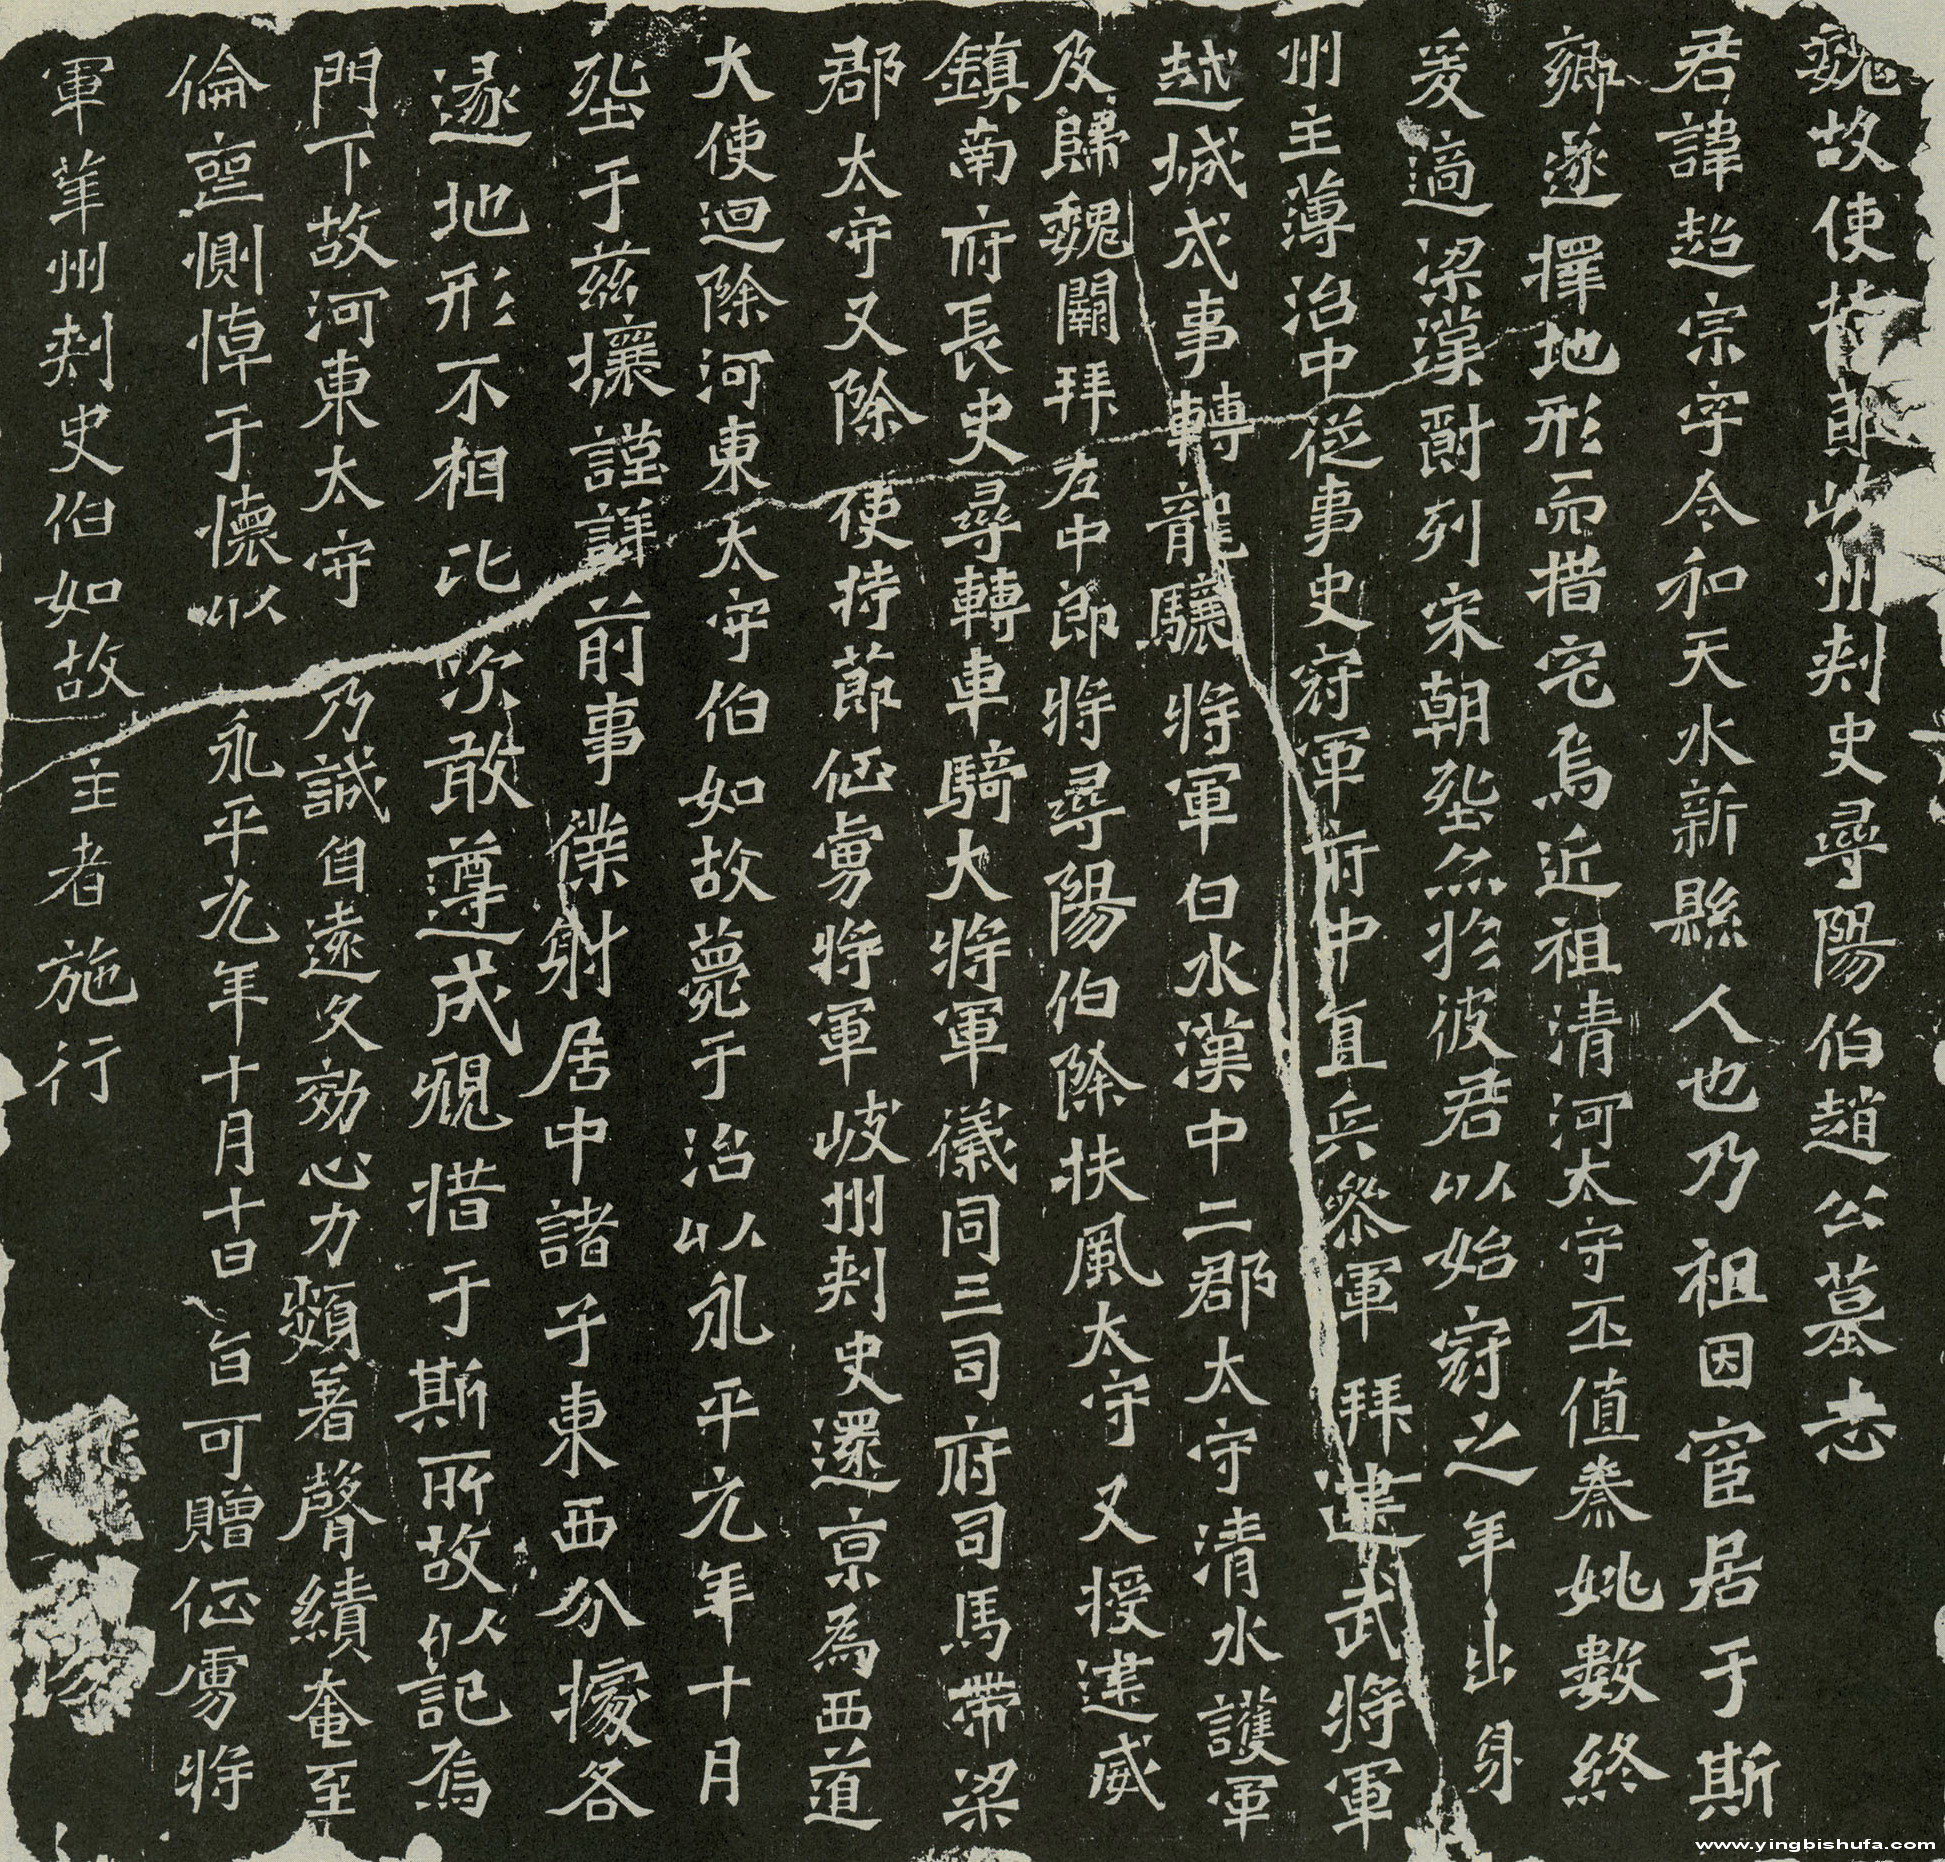 魏故使持節岐州刺史尋陽伯趙公墓志
君諱超宗字令和天水新縣人也乃祖因宦居于斯
鄉遂擇地形而措宅焉近祖清河太守丕值秦姚數終
爰適梁漢爵列宋朝墳亦於彼君以始冠之年出身
州主薄治中從事史冠軍府中直兵參軍拜建武將軍
越城戍事轉龍驤將軍白水漢中二郡太守清水護軍
及歸魏闕拜左中郎將尋陽伯除扶風太守又授建威
鎮南府長史尋轉車騎大將軍儀同三司府司馬帶梁
郡太守又除使持節征虜將軍岐州刺史還京為西道
大使迴除河東太守伯如故薨于治以永平元年十月
墳于茲壤謹詳前事僕射居中諸子東西分據各
逐地形不相比次敢遵成規措于斯所故以記焉
門下故河東太守乃誠自遠文効心力頻著聲績奄至
倫喪惻悼于懷以永平元年十月十日旨可贈征虜將
軍華州刺史伯如故主者施行
www.yingbishufa.com